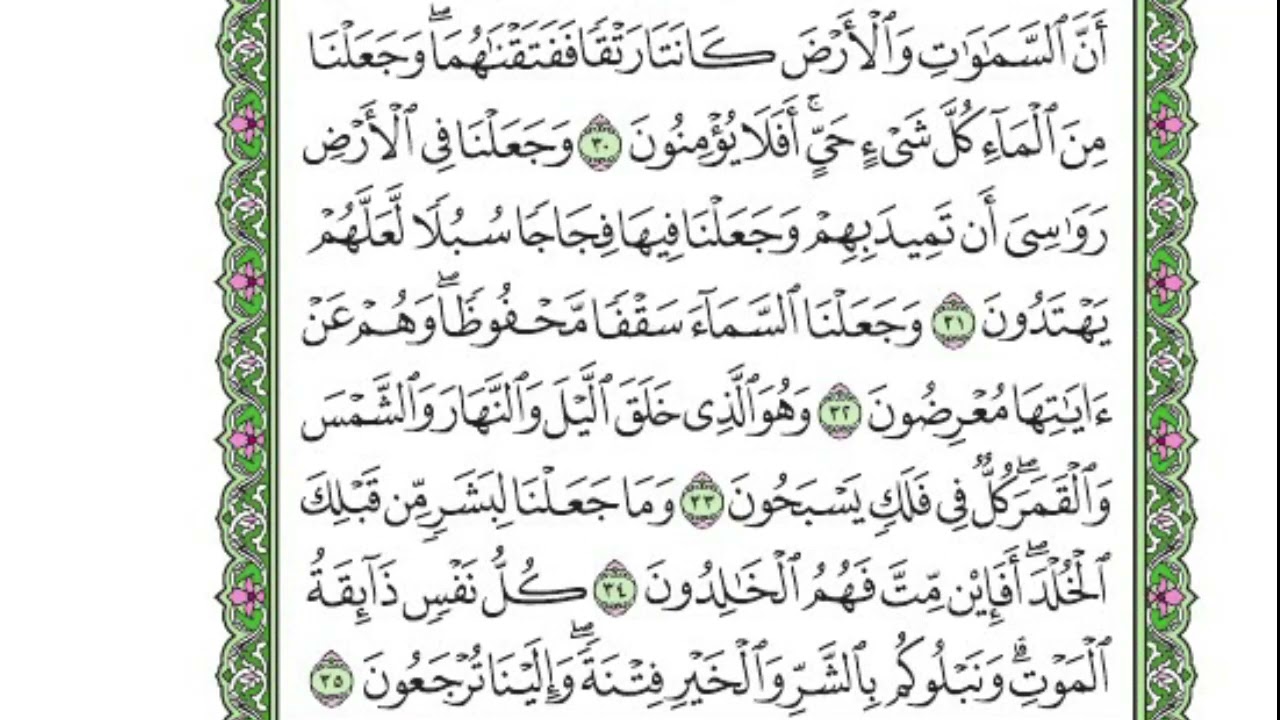 أَنَّ ٱلسَّمَٰوَٰتِ وَٱلْأَرْضَ كَانَتَا رَتْقًا فَفَتَقْنَٰهُمَاۖ وَجَعَلْنَا
مِنَ ٱلْمَآءِ كُلَّ شَىْءٍ حَىٍّۚ أَفَلَا يُؤْمِنُونَ ٣٠ وَجَعَلْنَا فِى ٱلْأَرْضِ
رَوَٰسِىَ أَن تَمِيدَ بِهِمْ وَجَعَلْنَا فِيهَا فِجَاجًا سُبُلًا لَّعَلَّهُمْ
يَهْتَدُونَ ٣١ وَجَعَلْنَا ٱلسَّمَآءَ سَقْفًا مَّحْفُوظًاۖ وَهُمْ عَنْ
ءَايَٰتِهَا مُعْرِضُونَ ٣٢ وَهُوَ ٱلَّذِى خَلَقَ ٱلَّيْلَ وَٱلنَّهَارَ وَٱلشَّمْسَ
وَٱلْقَمَرَۖ كُلٌّ فِى فَلَكٍ يَسْبَحُونَ ٣٣ وَمَا جَعَلْنَا لِبَشَرٍ مِّن قَبْلِكَ
ٱلْخُلْدَۖ أَفَإِي۟ن مِّتَّ فَهُمُ ٱلْخَٰلِدُونَ ٣٤ كُلُّ نَفْسٍ ذَآئِقَةُ
ٱلْمَوْتِۗ وَنَبْلُوكُم بِٱلشَّرِّ وَٱلْخَيْرِ فِتْنَةًۖ وَإِلَيْنَا تُرْجَعُونَ ٣٥